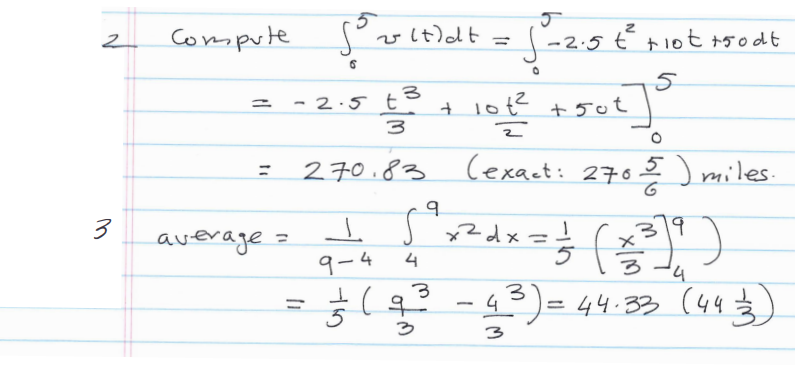 2 Compute ∫₀⁵ v(t)dt = ∫₀⁵ -2.5 t² + 10t + 50 dt
= -2.5 t³/3 + 10t²/2 + 50t ]₀⁵
= 270.83 (exact: 270 5/6) miles.
3 average = 1/(9-4) ∫₄⁹ x² dx = 1/5 (x³/3 ]₄⁹)
= 1/5 (9³/3 - 4³/3) = 44.33 (44 1/3)